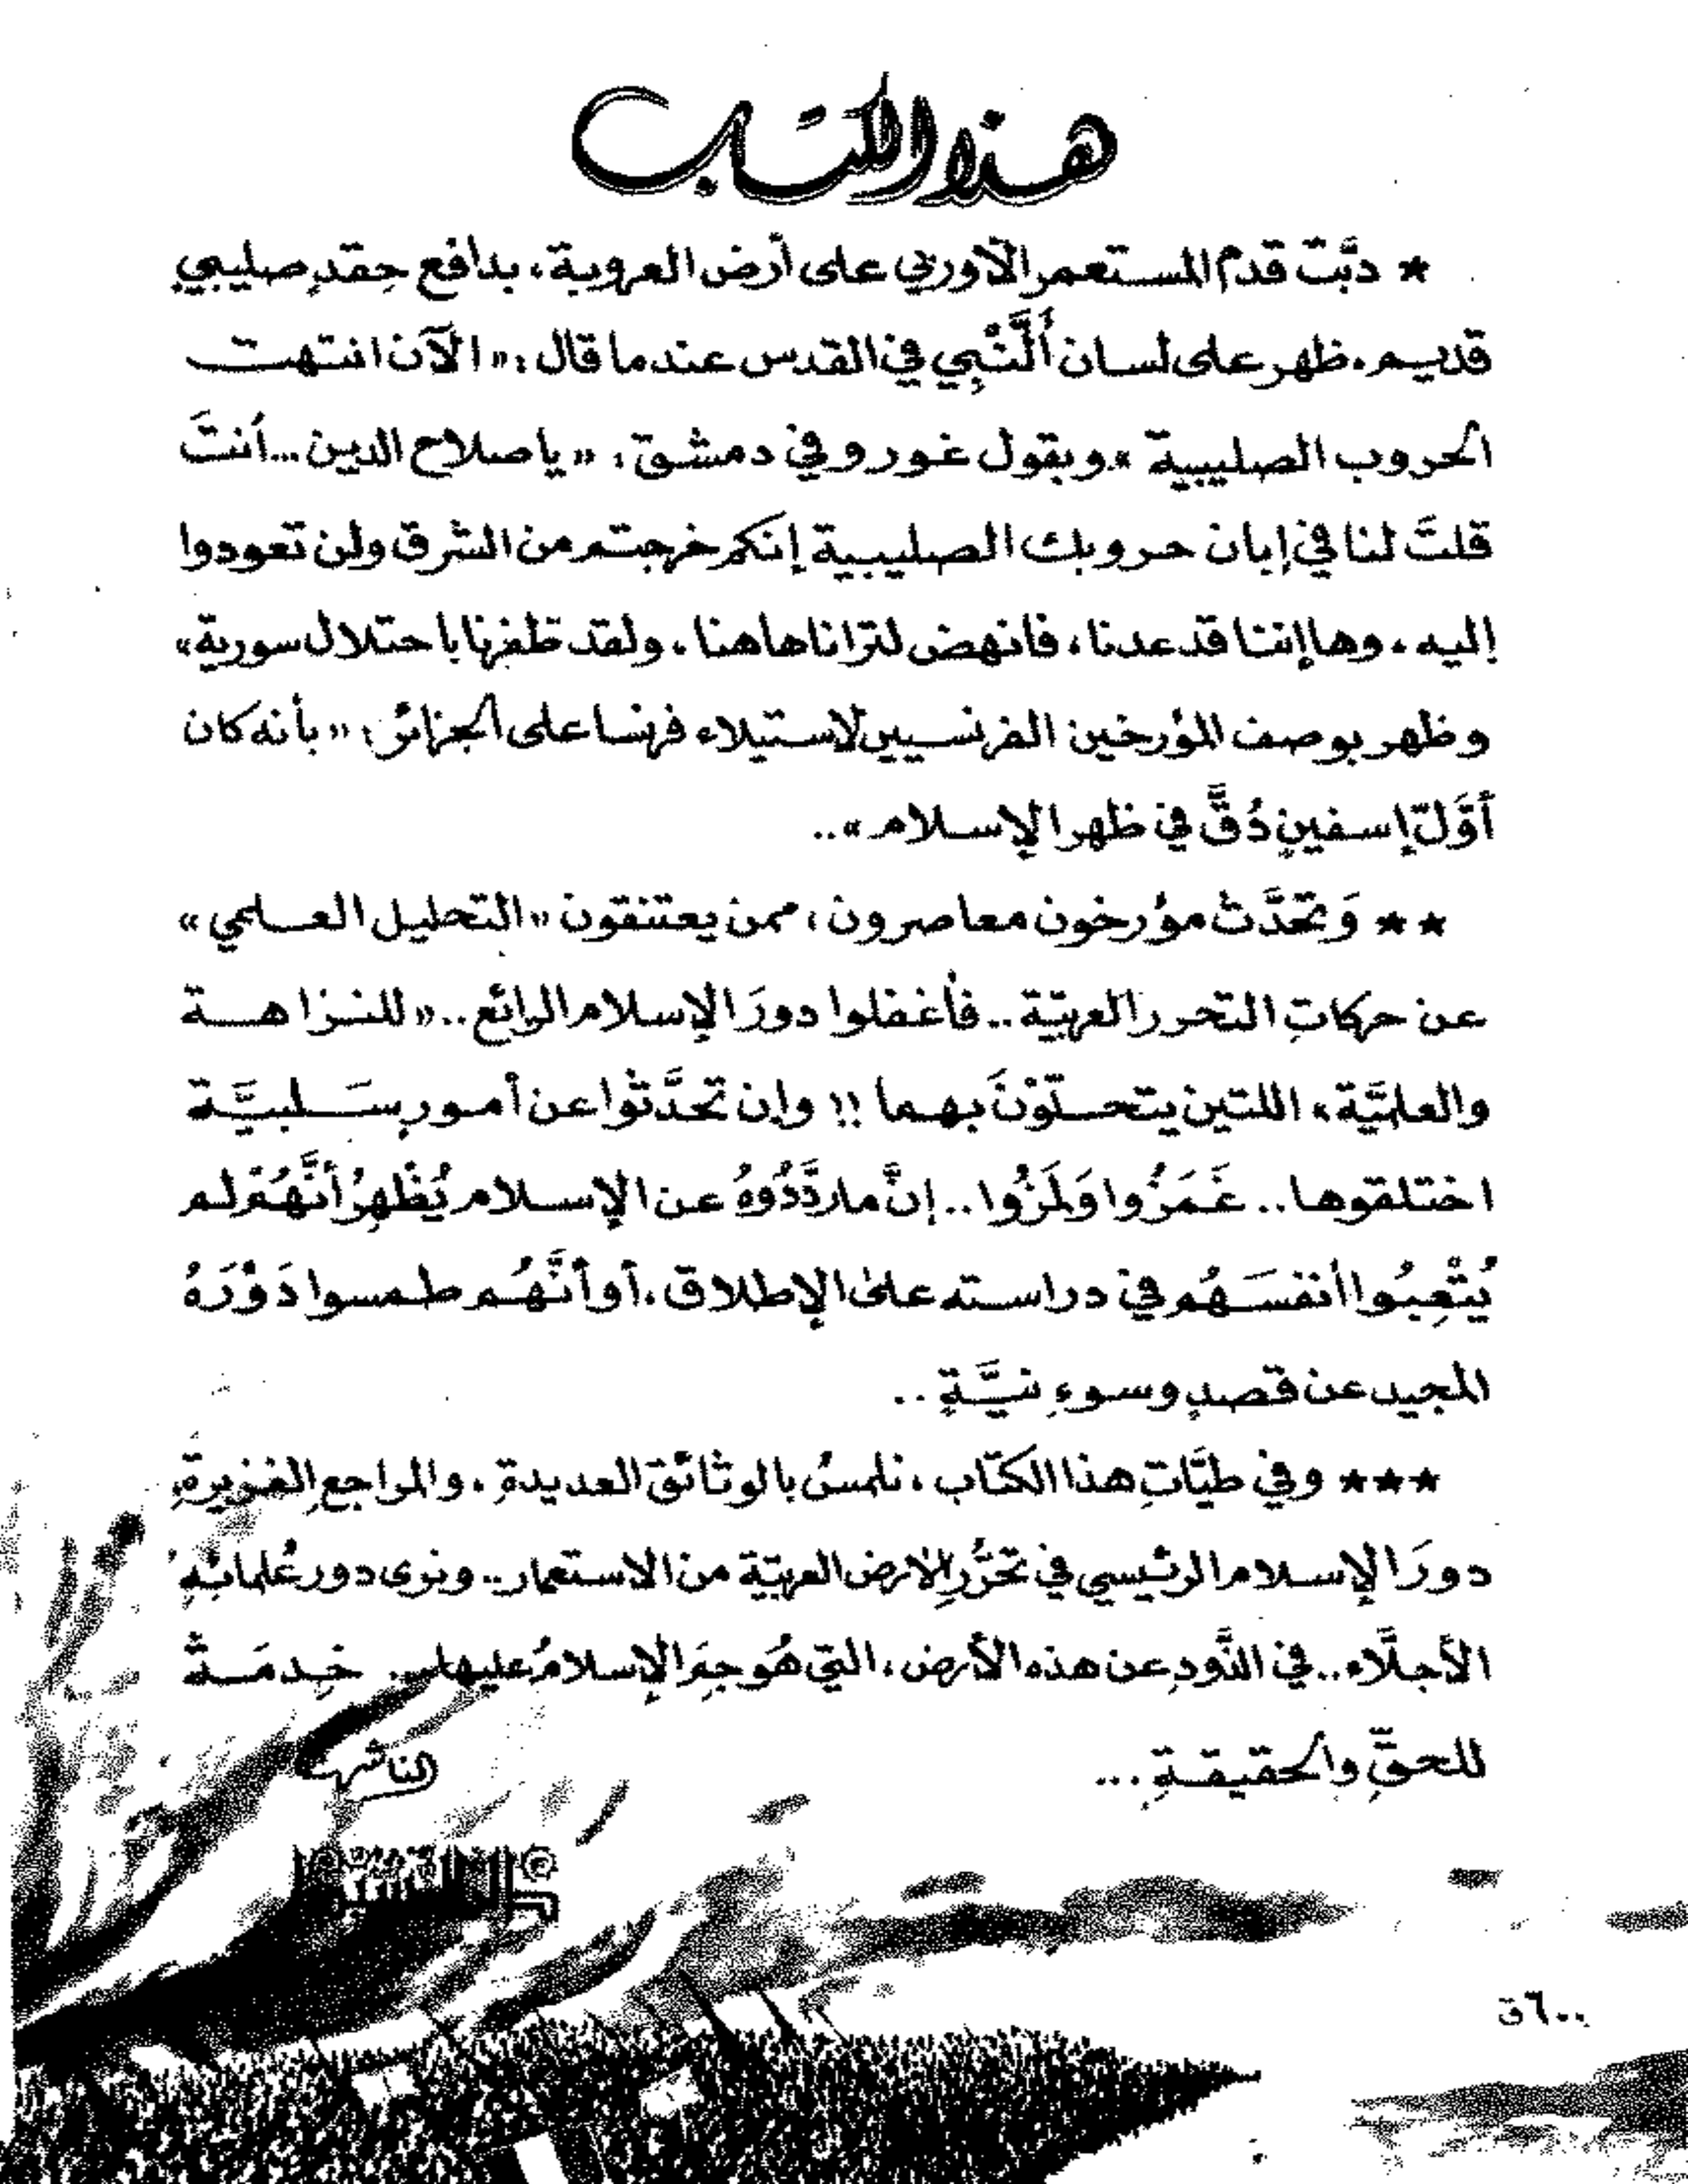 هذا الكتاب
★ دبَّت قدم المستعمر الأوربي على أرض العروبة، بدافع حِقدٍ صليبيٍ
قديم، ظهر على لسان أَلَّنْبِي في القدس عندما قال: «الآن انتهت
الحروب الصليبية» وبقول غورو في دمشق: «يا صلاح الدين... أنتَ
قلتَ لنا في إبان حروبك الصليبية إنكم خرجتم من الشرق ولن تعودوا
إليه، وها إننا قد عدنا، فانهض لترانا ها هنا، ولقد ظفرنا باحتلال سورية»
وظهر بوصف المؤرخين الفرنسيين لاستيلاء فرنسا على الجزائر: «بأنه كان
أوَّلَ إسفينٍ دُقَّ في ظهر الإسلام»..
★★ وَتحَدَّث مؤرخون معاصرون، ممن يعتنقون «التحليل العلمي»
عن حركاتِ التحرر العربيّة.. فأغفلوا دورَ الإسلام الرائع.. «للنزاهة
والعلميَّة» اللتين يتحلَّوْنَ بهما !! وإن تحَدَّثوا عن أمورٍ سَلبيَّة
اختلقوها.. غَمَزُوا وَلَمَزُوا.. إنَّ ما ردَّدُوهُ عن الإسلام يُظْهِرُ أنَّهُمْ لم
يُتْعِبُوا أنفسَهُم في دراسته على الإطلاق، أو أنَّهُم طمسوا دَوْرَهُ
المجيد عن قصدٍ وسوءِ نيَّةٍ ..
★★★ وفي طيَّاتِ هذا الكتاب، نلمسُ بالوثائق العديدةِ، والمراجعِ الغزيرةِ،
دورَ الإسلام الرئيسي في تحَرُّرِ الأرض العربيّة من الاستعمار.. ونرى دور عُلمائهِ
الأجلَّاء.. في الذَّود عن هذه الأرض، التي هُوجِمَ الإسلامُ عليها.. خِدمَةً
للحقِّ والحقيقةِ ...
الناشر
٦٠٠ق